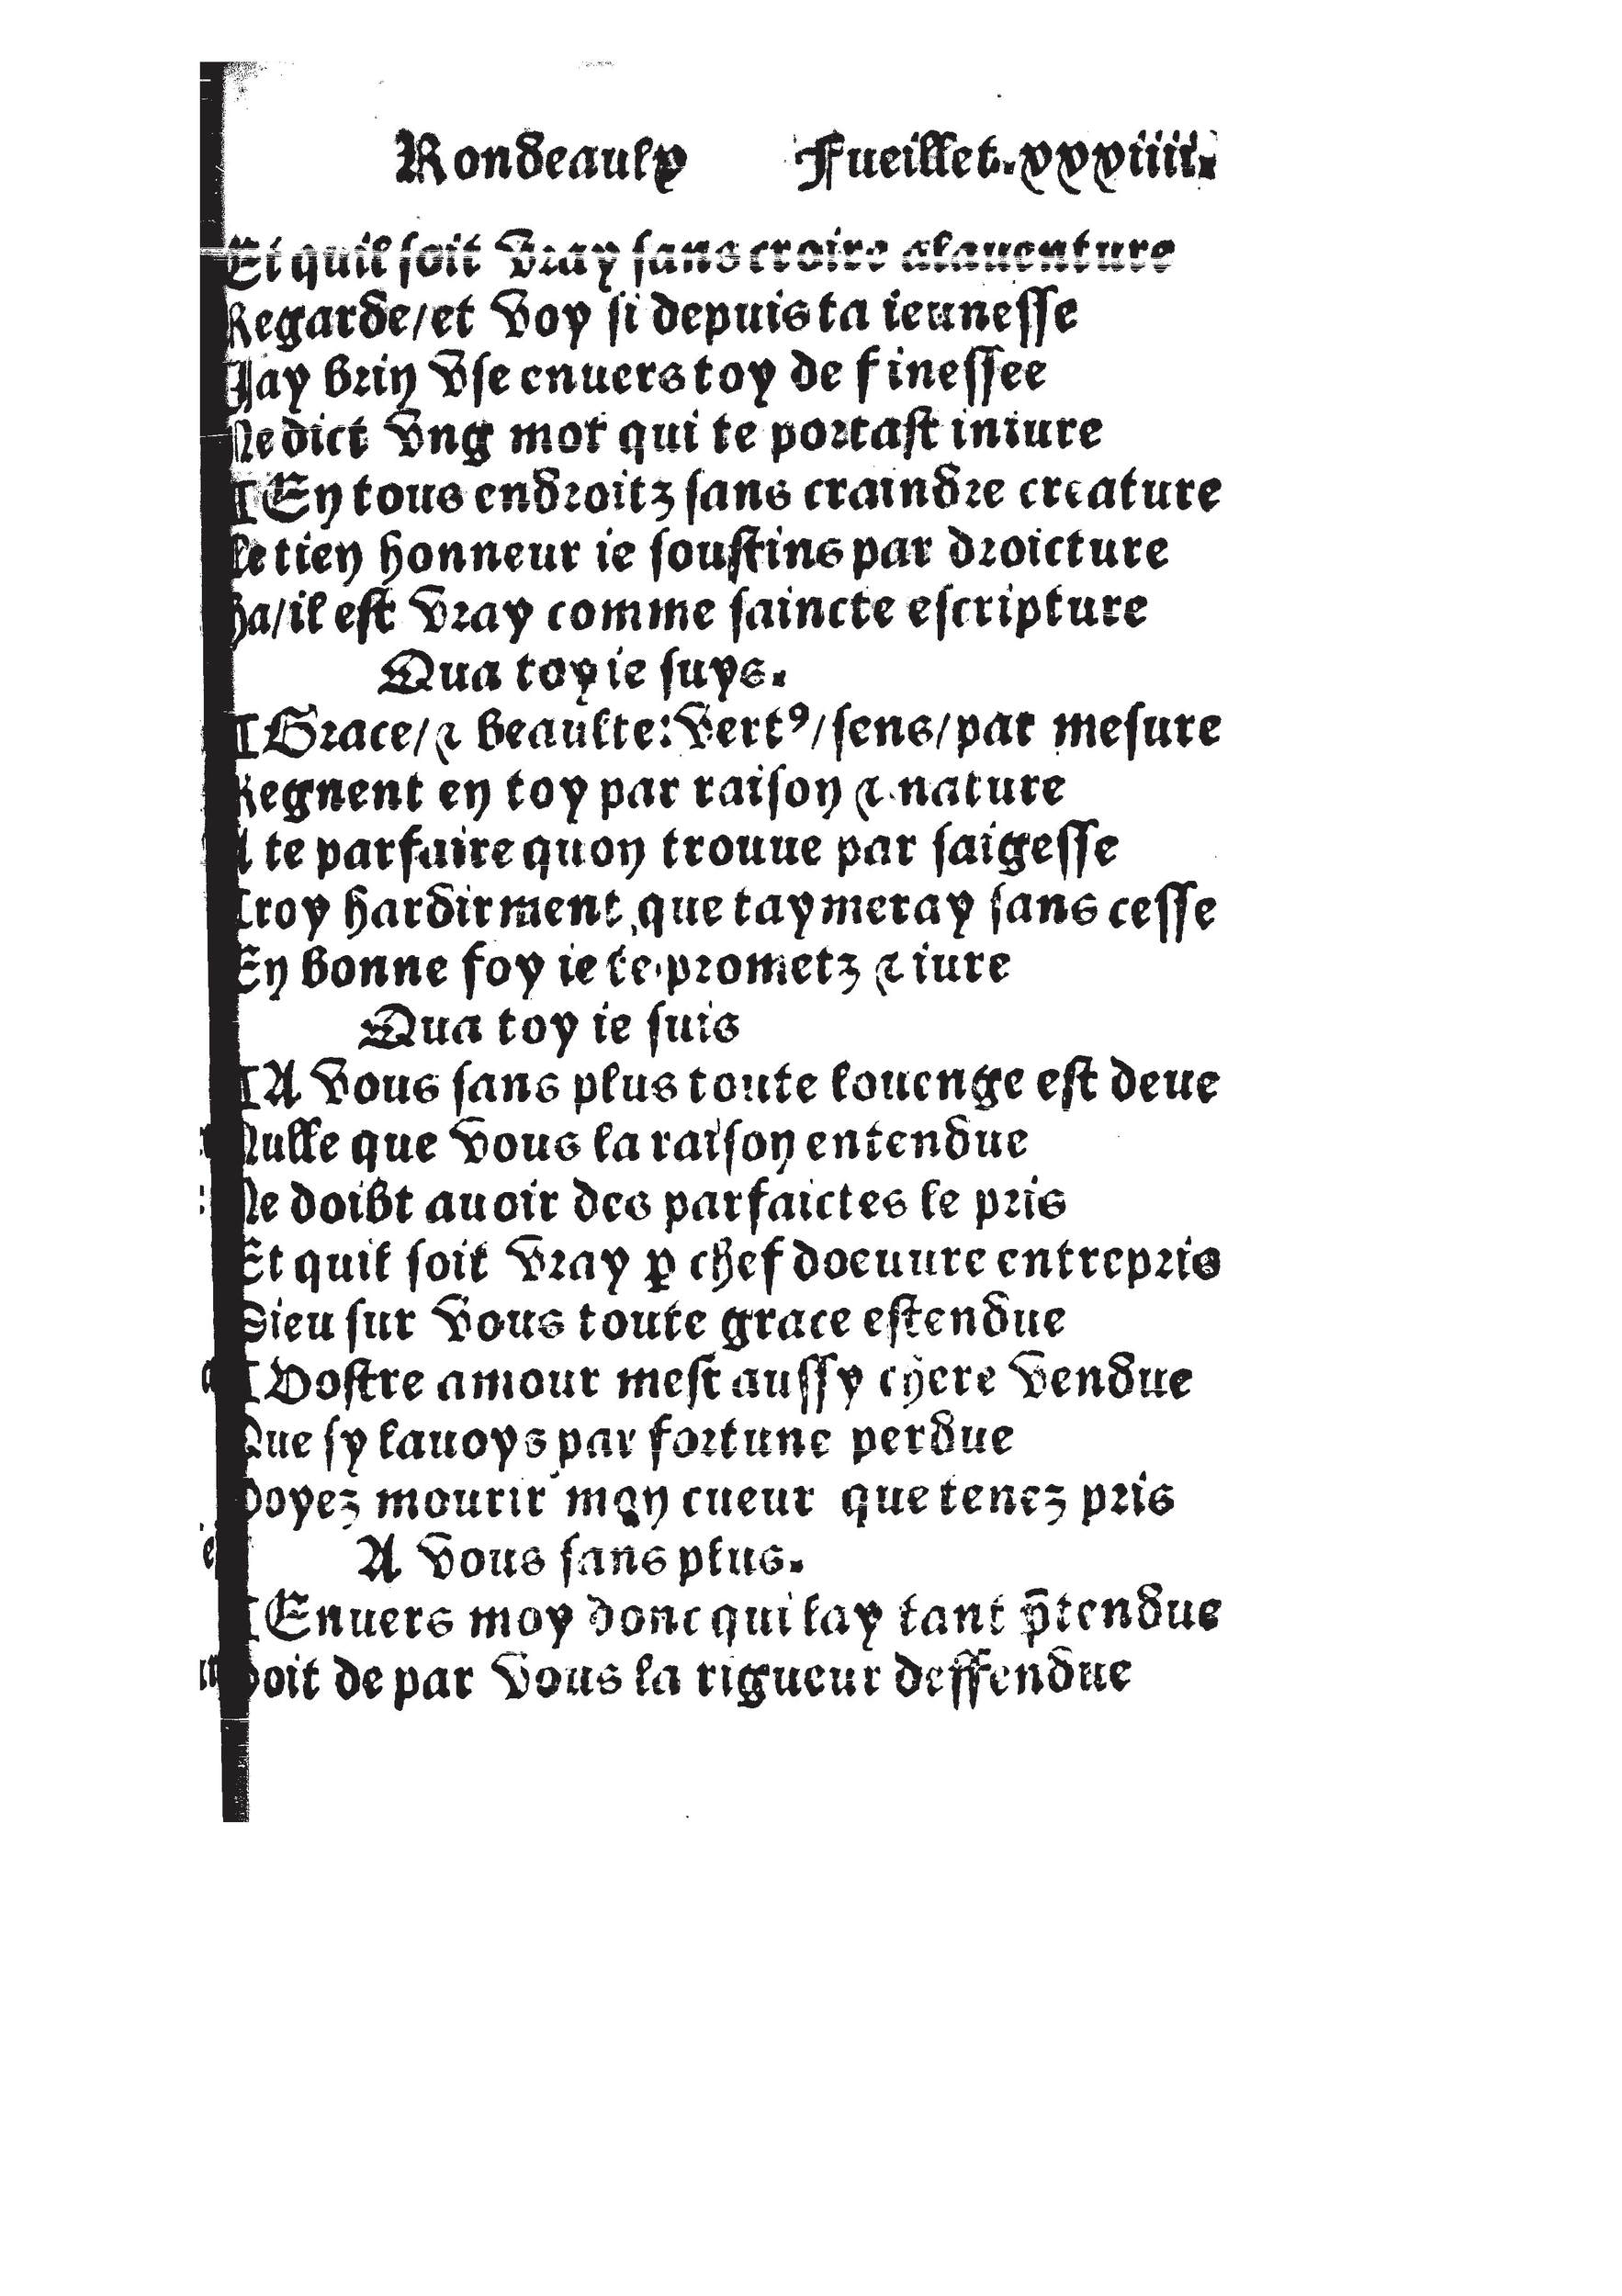 Rondeaulx Fueillet.xxxiiii.
Et quil soit vray sans croire alauenture
Regarde/et voy si depuis ta ieunesse
Jay brin vse enuers toy de finessee
Ne dict vng mot qui te portast iniure
¶En tous endroitz sans craindre creature
Le tien honneur ie soustins par droicture
ha/il est vray comme saincte escripture
Qua toy ie suys.
¶Grace/⁊ beaulte:vertꝰ/sens/par mesure
Regnent en toy par raison ⁊ nature
A te parfaire quon trouue par saigesse
Croy hardirment que taymeray sans cesse
En bonne foy ie te prometz ⁊ iure
Qua toy ie suis
¶A vous sans plus toute louenge est deue
Nulle que vous la raison entendue
Ne doibt auoir des parfaictes le pris
Et quil soit vray ꝑ chef doeuure entrepris
Dieu sur vous toute grace estendue
¶Vostre amour mest aussy chere vendue
Que sy lauoys par fortune perdue
Voyez mourir mon cueur que tenez pris
A vous sans plus.
¶Enuers moy donc qui lay tant p̄tendue
Soit de par vous la rigueur deffendue